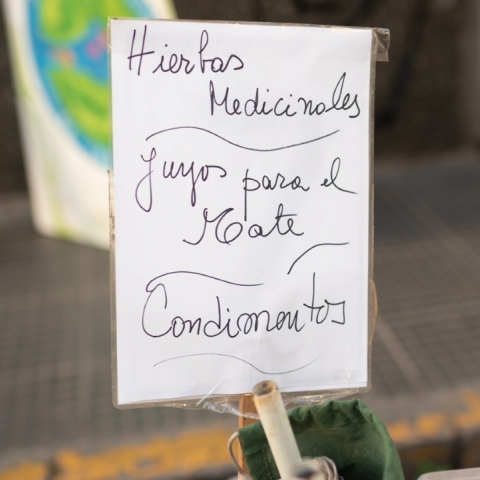 Hierbas
Medicinales
Yuyos para el
Mate
Condimentos